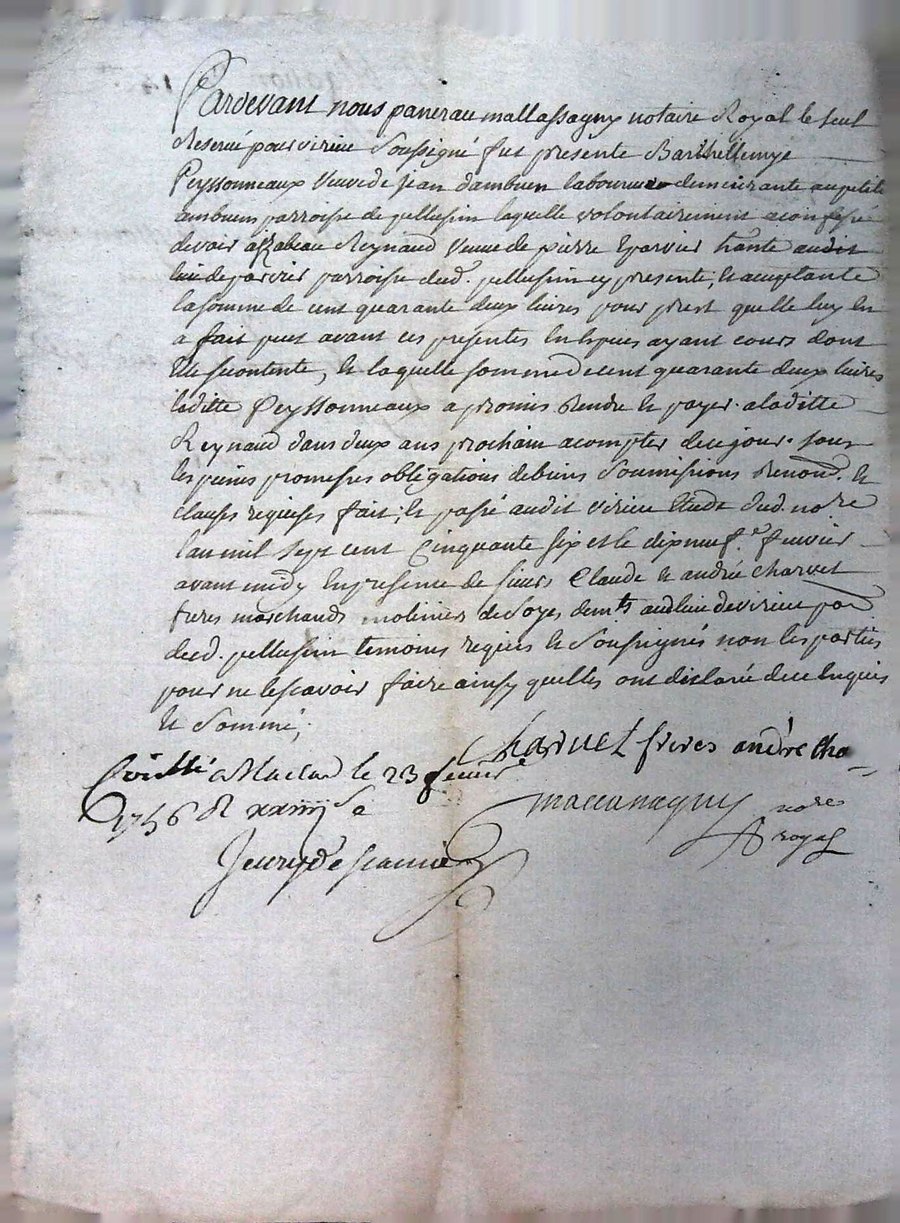 Pardevant nous pancrau mallassagny notaire Royal le seul
Reservé pour virieu soussigné fut presente Barthellemye
Peyssonneaux veuve de jean dambuen laboureur demeurante au petit
ambuen parroisse de pellussin laquelle volontairement a confessé
devoir a Izabeau Reynaud veuve de pierre eparvier hante audit
lieu de parroisse dud. pellussin cy presente, & acceptante
la somme de cent quarante deux livres pour prest quelle luy en
a fait peut avant ces presentes en especes ayant cours dont
elle se contente, & laquelle somme de cent quarante deux livres
laditte Peyssonneaux a promis rendre & payer a laditte
Reynaud dans deux ans prochain a compter de ce jour. sous
les peines promesses obligations de biens soumissions renond. &
clauses requises fait, & passé audit virieu etude dud. nore
l'an mil sept cent cinquante six et le dixneuf.e fevrier
avant midy en presence de sieurs Claude & andré charvet
freres marchands moliniers de soyes demts audlieu de virieu par
dud. pellussin temoins requis & soussignés non les parties
pour ne le scavoir faire ainsy quelles ont déclaré de ce enquis
& sommé;
Charvet freres andré cha
Controllé a Maclas le 23 fevrier
1756 R xxiiij s
mallassagny nore
royal